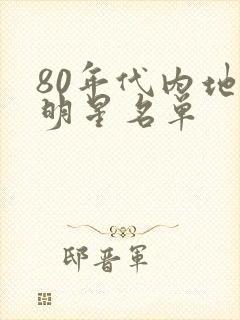 80年代内地
明星名单
邸晋军